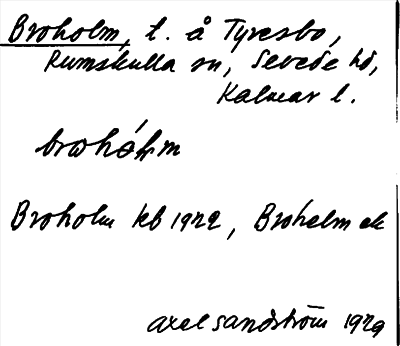 Broholm, t. å Tyresbo,
Rumskulla sn, Sevede hd,
Kalmar l.
Broholm kb 1922, Broholm ek
Axel Sandström 1929